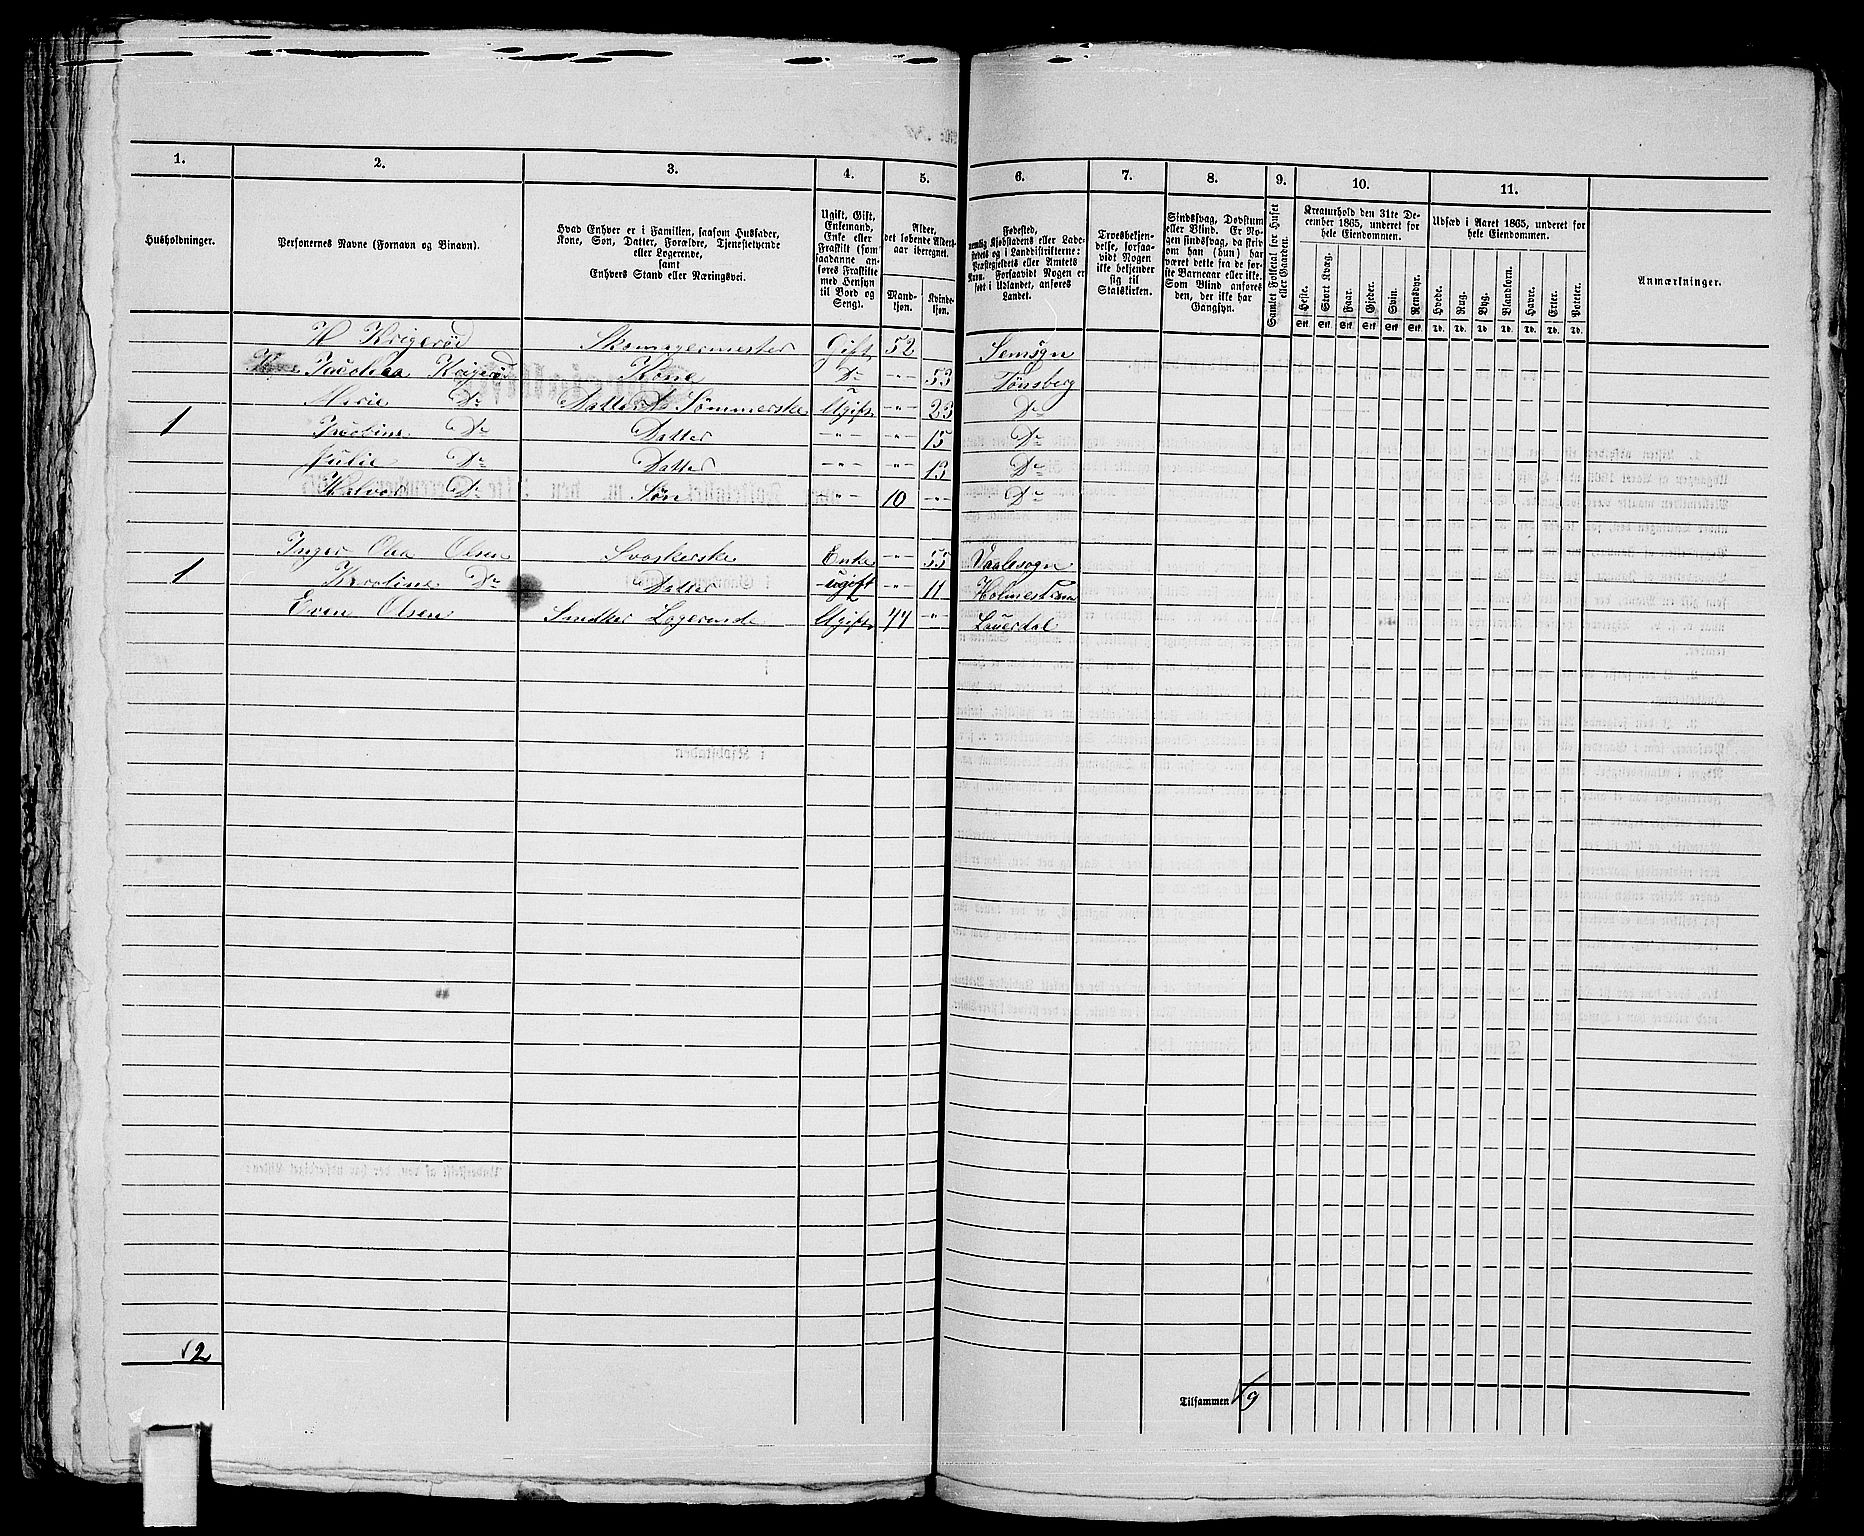 1. 2. 3. 4. 5. 6. 7. 8. 9. 10. 11.
Husholdninger.
Personernes Navne (Fornavn og Binavn).
Hvad Enhver er i Familien, saasom Husfader,
Kone, Søn, Datter, Forældre, Tjenestetyende
eller Logerende,
samt
Enhvers Stand eller Næringsvei.
Ugift, Gift,
Enkemand,
Enke eller
Fraskilt (som
saadanne an-
føres Fraskilte
med Hensyn
til Bord og
Seng).
Alder,
det løbende Alders-
aar iberegnet.
Mand-
kjøn.
Kvinde-
kjøn.
Fødested,
nemlig Kjøbstadens eller Lade-
stedets og i Landdistrikterne:
Præstegjeldets eller Amtets
Navn. Forsaavidt Nogen er
født i Udlandet, anføres
Landet.
Troesbekjen-
delse, forsaa-
vidt Nogen
ikke bekjender
sig til
Statskirken.
Sindssvag, Døvstum
eller Blind. Er No-
gen sindssvag, da skriv
om han (hun) har
været dette fra de før-
ste Barneaar eller ikke.
Som Blind anføres
den, der ikke har
Gangsyn.
Samlet Folketal for Huset
eller Gaarden.
Kreaturhold den 31te De-
cember 1865, underet for
hele Eiendommen.
Heste. Stort Kvæg. Faar. Gjeder. Svin. Rensdyr.
Stk. Stk. Stk. Stk. Stk. Stk.
Udsæd i Aaret 1865, underet for
hele Eiendommen.
Hvede. Rug. Byg. Blandkorn. Havre. Erter. Poteter.
Td. Td. Td. Td. Td. Td. Td.
Anmærkninger.
H Krigerød Skomagermester Gift 52 Semsogn
Krigerød Kone Do -"- 53 Tønsberg
Marie Do Datter Sømmerske Ugift -"- 23 Do
1 Do Datter -"- -"- 15 Do
Julie Do Datter -"- -"- 13 Do
Halvor Do Søn -"- 10 -"- Do
Inger Olea Olsen Enke -"- 55 Vaalesogn
1 Karoline Do Datter ugift -"- 11 Holmestrand
Even Olsen Logerende Ugift 44 -"- Laurdal
2
Tilsammen 9